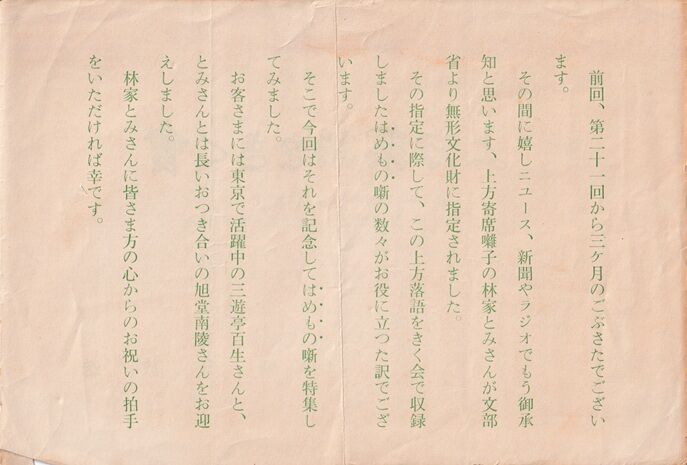 前回、第二十一回から三ケ月のごぶさたでござい
ます。
その間に嬉しニユース、新聞やラジオでもう御承
知と思います、上方寄席囃子の林家とみさんが文部
省より無形文化財に指定されました。
その指定に際して、この上方落語をきく会で収録
しましたはめもの噺の数々がお役に立つた訳でござ
います。
そこで今回はそれを記念してはめもの噺を特集し
てみました。
お客さまには東京で活躍中の三遊亭百生さんと、
とみさんとは長いおつき合いの旭堂南陵さんをお迎
えしました。
林家とみさんに皆さま方の心からのお祝いの拍手
をいただければ幸です。